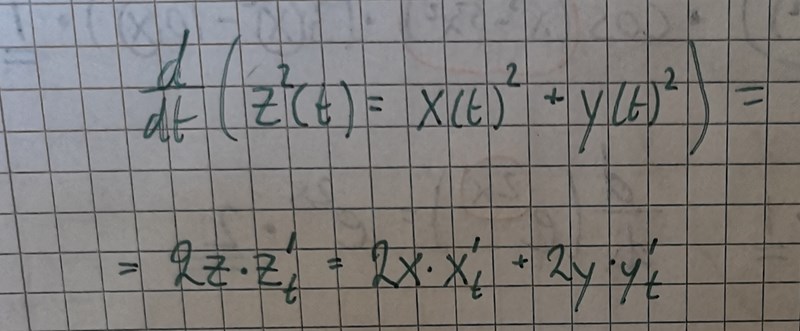 d/dt (z²(t) = x(t)² + y(t)²) =
= 2z·z'ₜ = 2x·x'ₜ + 2y·y'ₜ